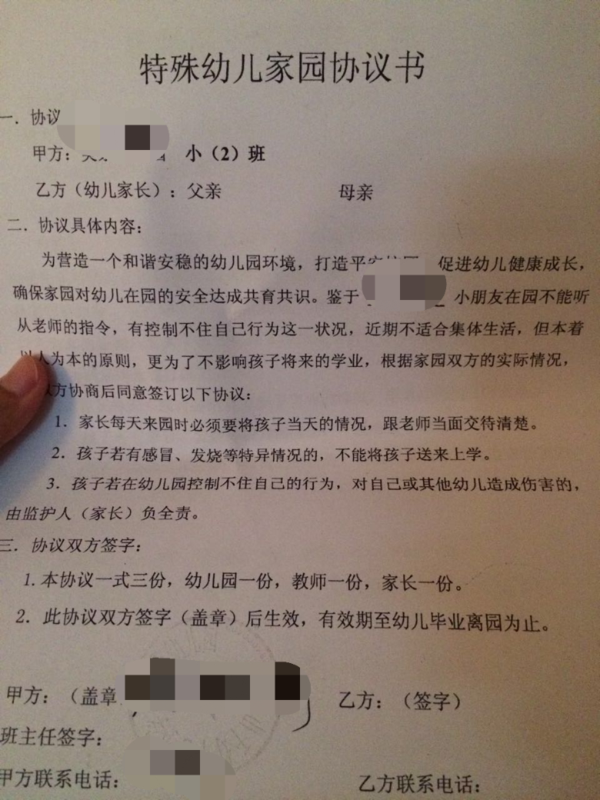 特殊幼儿家园协议书
一．协议
甲方： 小（2）班
乙方（幼儿家长）：父亲 母亲
二．协议具体内容：
为营造一个和谐安稳的幼儿园环境，打造平安 促进幼儿健康成长，
确保家园对幼儿在园的安全达成共育共识。鉴于 小朋友在园不能听
从老师的指令，有控制不住自己行为这一状况，近期不适合集体生活，但本着
以人为本的原则，更为了不影响孩子将来的学业，根据家园双方的实际情况，
方协商后同意签订以下协议：
1．家长每天来园时必须要将孩子当天的情况，跟老师当面交待清楚。
2．孩子若有感冒、发烧等特异情况的，不能将孩子送来上学。
3．孩子若在幼儿园控制不住自己的行为，对自己或其他幼儿造成伤害的，
由监护人（家长）负全责。
三．协议双方签字：
1.本协议一式三份，幼儿园一份，教师一份，家长一份。
2．此协议双方签字（盖章）后生效，有效期至幼儿毕业离园为止。
甲方：（盖章 乙方：（签字）
班主任签字：
甲方联系电话： 乙方联系电话：